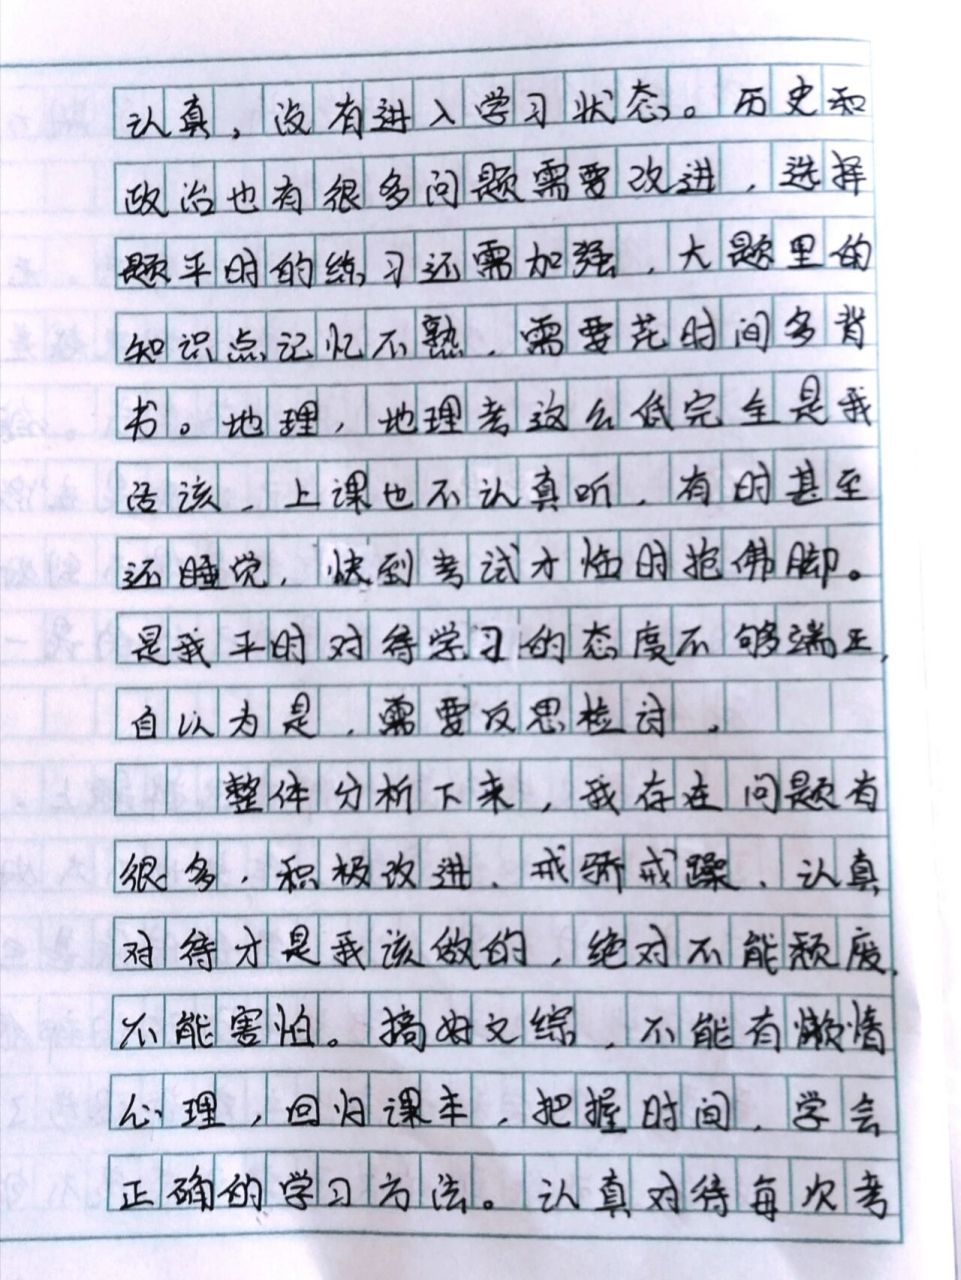 认真，没有进入学习状态。历史和
政治也有很多问题需要改进，选择
题平时的练习还需加强，大题里的
知识点记忆不熟，需要花时间多背
书。地理，地理考这么低完全是我
活该，上课也不认真听，有时甚至
还睡觉，快到考试才临时抱佛脚。
是我平时对待学习的态度不够端正，
自以为是，需要反思检讨。
整体分析下来，我存在问题有
很多，积极改进，戒骄戒躁，认真
对待才是我该做的，绝对不能颓废，
不能害怕。搞好文综，不能有懒惰
心理，回归课本，把握时间，学会
正确的学习方法。认真对待每次考